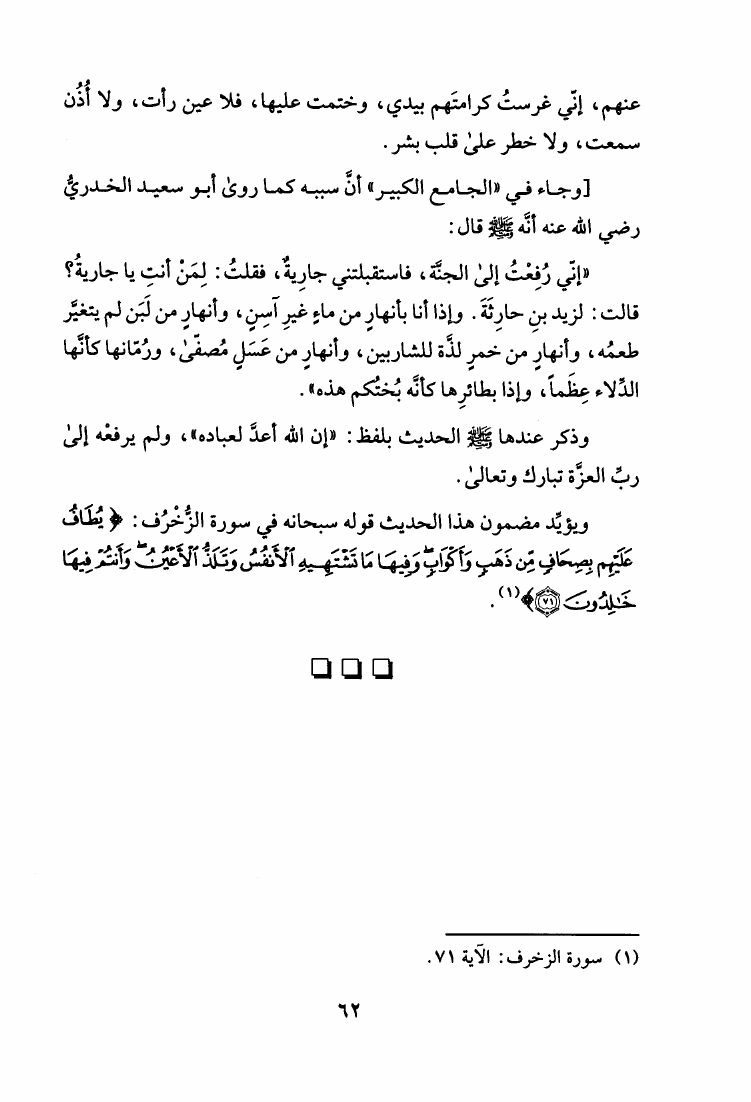 عنهم، إنّي غرستُ كرامتَهم بيدي، وختمت عليها، فلا عين رأت، ولا أُذُن
سمعت، ولا خطر علىٰ قلب بشر.
[وجاء في «الجامع الكبير» أنَّ سببه كما روىٰ أبو سعيد الخدريُّ
رضي الله عنه أنَّه ﷺ قال:
«إنّي رُفِعْتُ إلىٰ الجنَّة، فاستقبلتني جارِيةٌ، فقلتُ: لِمَنْ أنتِ يا جاريةُ؟
قالت: لزيد بنِ حارِثَةَ. وإذا أنا بأنهارٍ من ماءٍ غيرِ آسِنٍ، وأنهارٍ من لَبَن لم يتغيَّر
طعمُه، وأنهارٍ من خمرٍ لذَّة للشاربين، وأنهارٍ من عَسَلٍ مُصفّىٰ، ورُمّانها كأنَّها
الدِّلاء عِظَماً، وإذا بطائرِها كأنَّه بُختُكم هذه».
وذكر عندها ﷺ الحديث بلفظ: «إن الله أعدَّ لعباده»، ولم يرفعْه إلىٰ
ربِّ العزَّة تبارك وتعالىٰ.
ويؤيِّد مضمون هذا الحديث قوله سبحانه في سورة الزُّخْرُف: ﴿ يُطَافُ
عَلَيْهِم بِصِحَافٍ مِّن ذَهَبٍ وَأَكْوَابٍ ۖ وَفِيهَا مَا تَشْتَهِيهِ ٱلْأَنفُسُ وَتَلَذُّ ٱلْأَعْيُنُ ۖ وَأَنتُمْ فِيهَا
خَـٰلِدُونَ ٧١ ﴾(١).
(١) سورة الزخرف: الآية ٧١.
٦٢